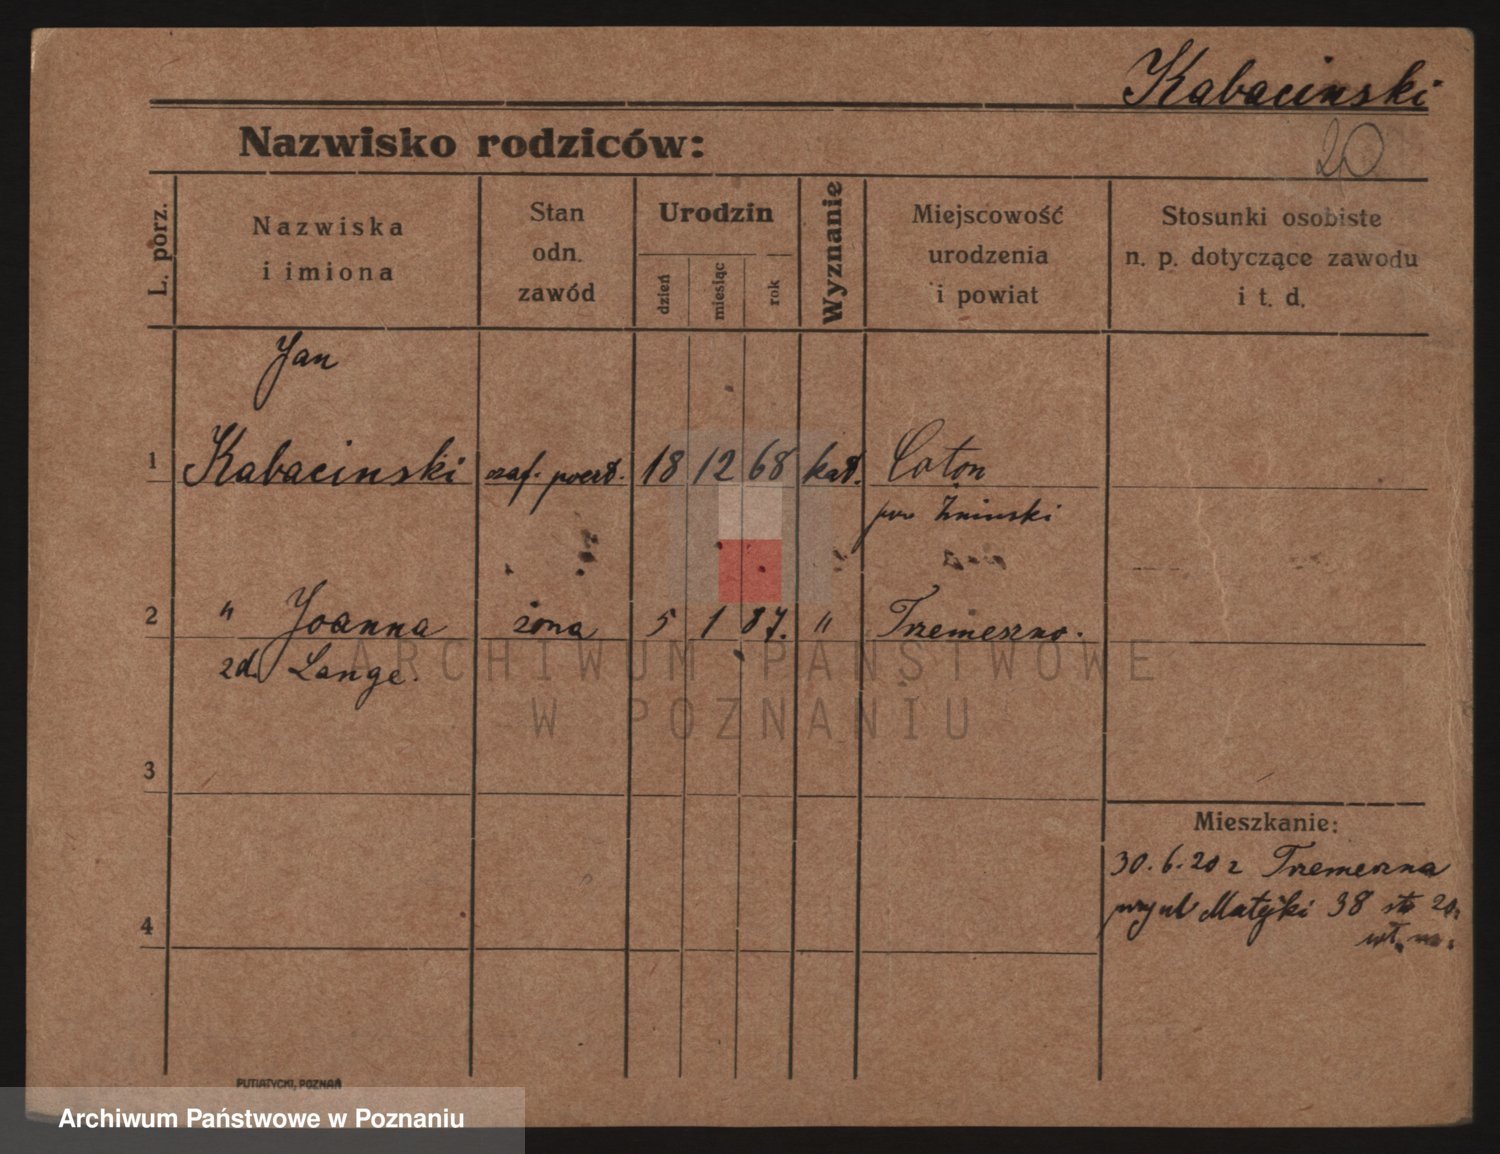 Kabacinski
20
Nazwisko rodziców:
L. porz.
Nazwiska
i imiona
Stan
odn.
zawód
Urodzin
dzień
miesiąc
rok
Wyznanie
Miejscowość
urodzenia
i powiat
Stosunki osobiste
n. p. dotyczące zawodu
i t. d.
Jan
1 Kabacinski 18 12 68 kat.
pow Zninski
2 " Joanna żona 5 1 87. " Trzemeszno.
zd. Lange.
ARCHIWUM PAŃSTWOWE
W POZNANIU
3
Mieszkanie:
30.6.20 z Trzemeszna
Matejki 38
4
PUTIATYCKI, POZNAŃ
Archiwum Państwowe w Poznaniu